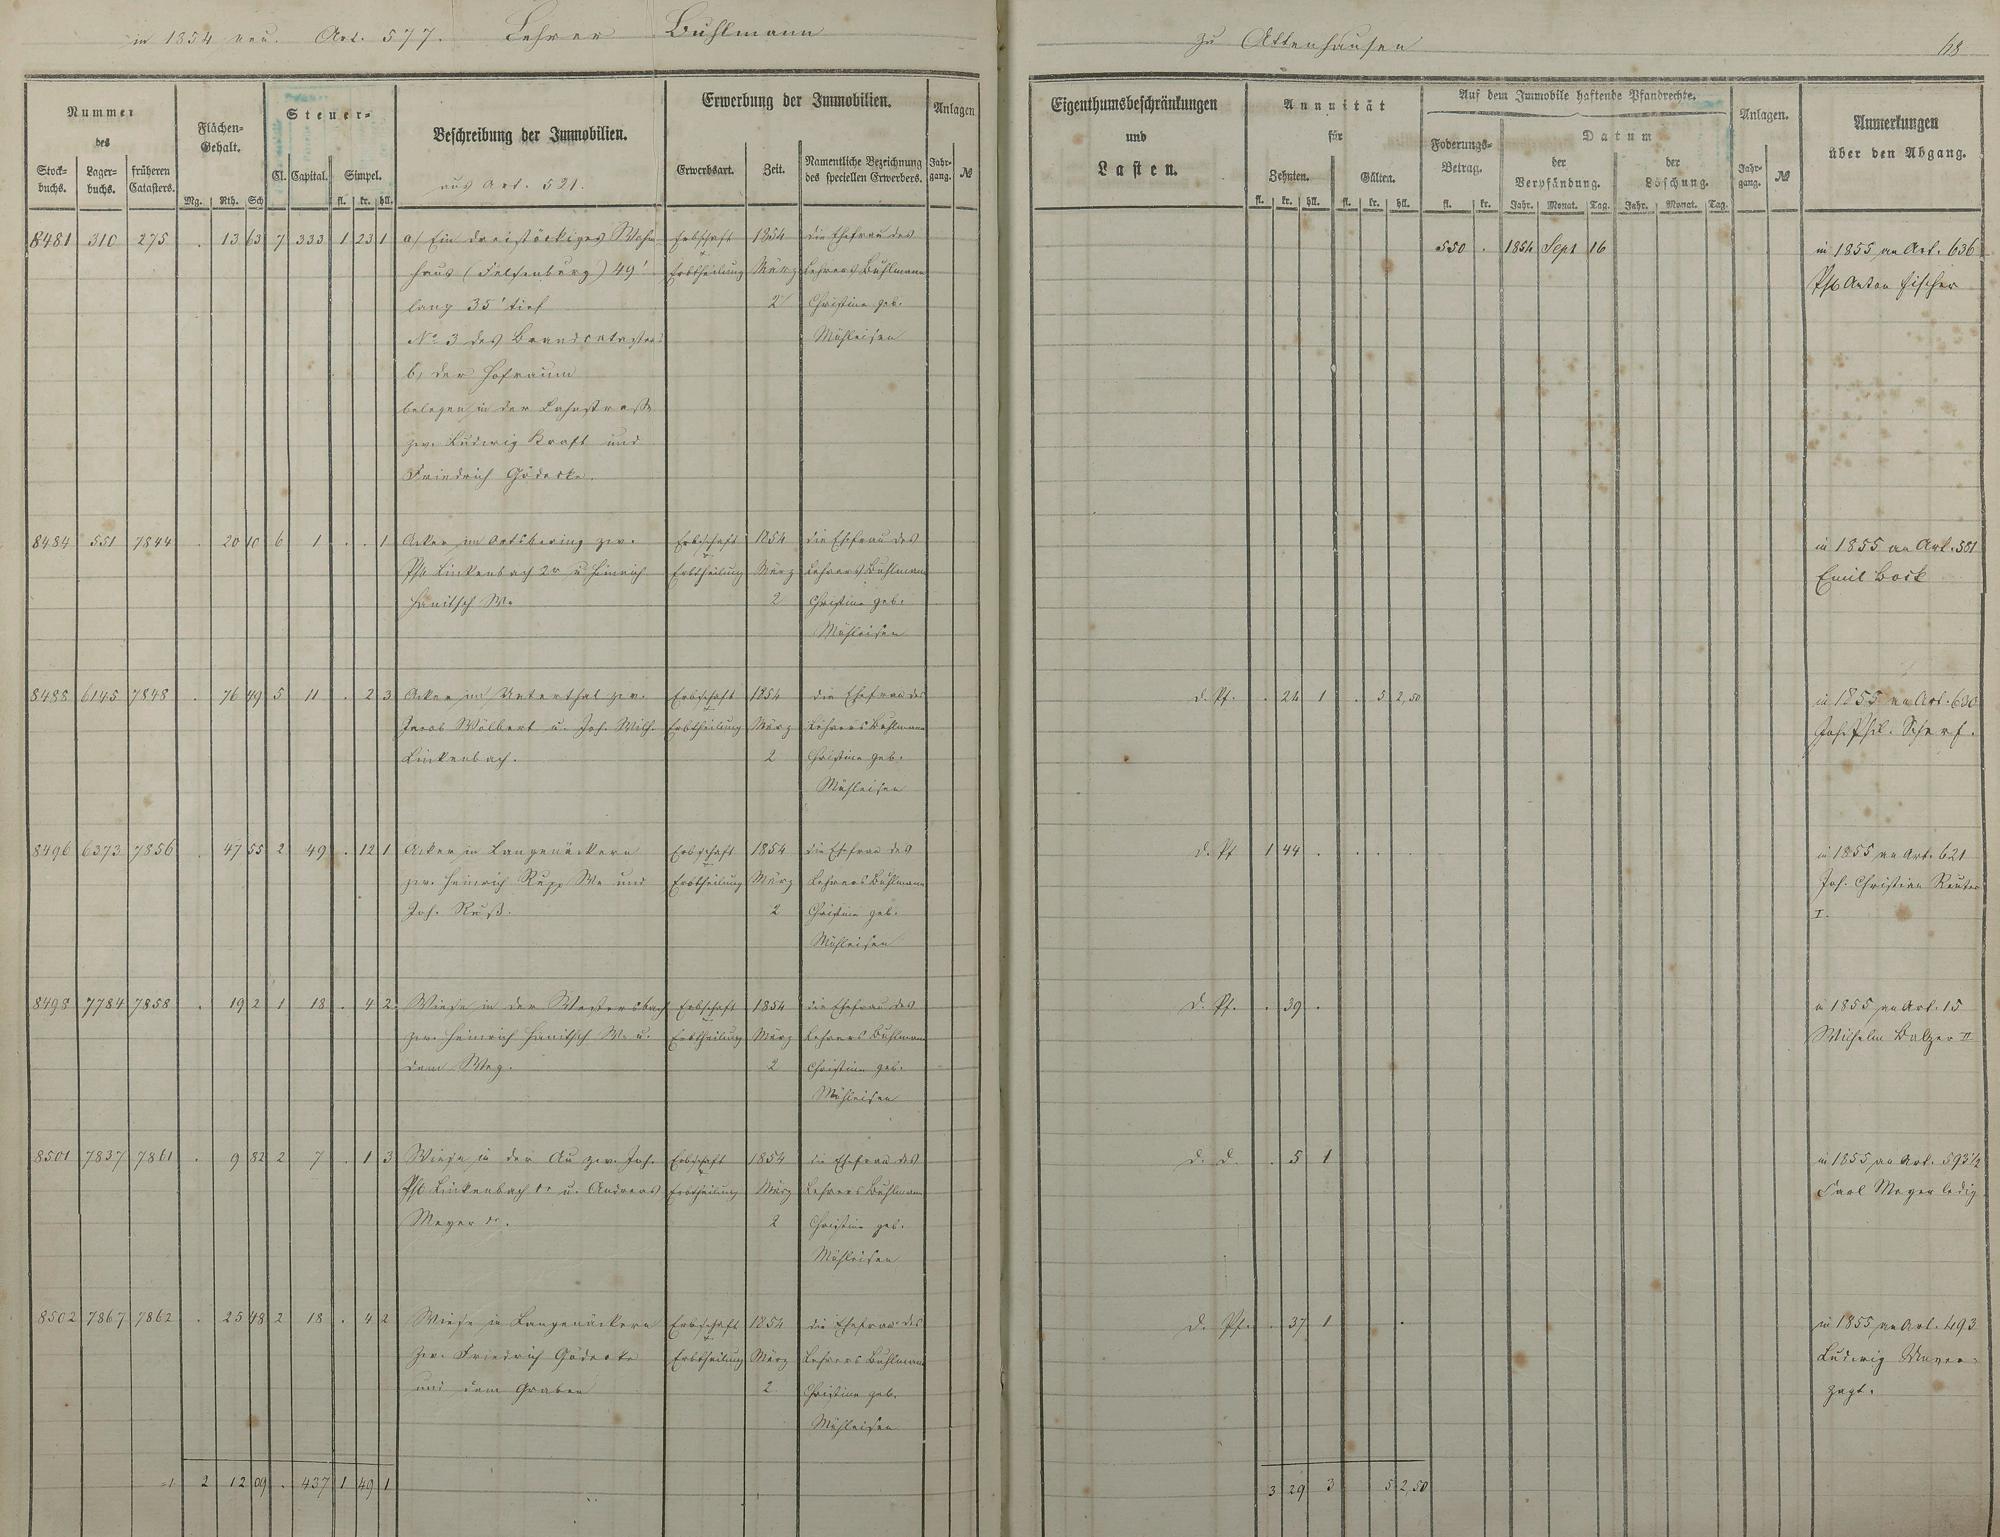 in 1854 neu. Art. 577. Lehrer Buhlmann
zu Attenhausen
68
Nummer
des
Stock-
buchs.
Lager-
buchs.
früheren
Catasters.
Flächen-
Gehalt.
Mg. Rth. Sch
Steuer-
Cl. Capital. Simpel.
fl. kr. hll.
Beschreibung der Immobilien.
aus Art. 521.
Erwerbung der Immobilien.
Erwerbsart. Zeit.
Namentliche Bezeichnung
des speciellen Erwerbers.
Anlagen
Jahr-
gang. №
Eigenthumsbeschränkungen
und
Lasten.
Annuität
für
Zehnten. Gülten.
fl. kr. hll. fl. kr. hll.
Auf dem Immobile haftende Pfandrechte.
Foderungs-
Betrag.
fl. kr.
Datum
der
Verpfändung.
der
Löschung.
Jahr. Monat. Tag. Jahr. Monat. Tag.
Anlagen.
Jahr-
gang. №
Anmerkungen
über den Abgang.
8481 310 275 . 13 63 7 333 1 23 1 a) Ein dreistöckiges Wohn- Erbschaft 1854 die Ehefrau des 550 . 1854 Sept 16 in 1855 an Art. 636
haus (Felsenburg) 49' Erbtheilung März Lehrers Buhlmann Phil Anton Fischer
lang 35' tief 2 Christine geb.
No 3 des Brandcatasters Mühleisen
b, der Hofraum
belegen in der Lahnstraße
zw. Ludwig Kraft und
Friedrich Gödecke.
8484 551 7844 . 20 10 6 1 . . 1 Acker im Ortsbering zw. Erbschaft 1854 die Ehefrau des in 1855 an Art. 551
Phil Linkenbach 2r u Heinrich Erbtheilung März Lehrers Buhlmann Emil Bock
Hanitsch We 2 Christine geb.
Mühleisen
8488 6145 7848 . 76 49 5 11 . 2 3 Acker im Unterthal zw. Erbschaft 1854 die Ehefrau des d. Pf. . 24 1 . 5 2,50 in 1855 an Art. 630
Jacob Wölbert u. Joh. Wilh. Erbtheilung März Lehrers Buhlmann Joh. Phil. Scherf.
Linkenbach. 2 Christine geb.
Mühleisen
8496 6373 7856 . 47 55 2 49 . 12 1 Acker in Langenäckern Erbschaft 1854 die Ehefrau des d. Pf 1 44 . . . . in 1855 an Art. 621
zw. Heinrich Rupp We und Erbtheilung März Lehrers Buhlmann Joh. Christian Reuter
Joh. Ruß. 2 Christine geb. I.
Mühleisen
8498 7784 7858 . 19 2 1 18 . 4 2 Wiese in der Westersbach Erbschaft 1854 die Ehefrau des d. Pf. . 39 . in 1855 an Art. 15
zw. Heinrich Hanitsch We u. Erbtheilung März Lehrers Buhlmann Wilhelm Balzer II
dem Weg. 2 Christine geb.
Mühleisen
8501 7837 7861 . 9 82 2 7 . 1 3 Wiese in der Au zw. Joh. Erbschaft 1854 die Ehefrau des d. d. . 5 1 in 1855 an Art. 593½
Phil Linkenbach u. Andreas Erbtheilung März Lehrers Buhlmann Carl Meyer ledig
Meyer 2 Christine geb.
Mühleisen
8502 7867 7862 . 25 48 2 18 . 4 2 Wiese in Langenäckern Erbschaft 1854 die Ehefrau des d. Pf. . 37 1 . in 1855 an Art. 493
zw. Friedrich Gödecke Erbtheilung März Lehrers Buhlmann Ludwig
und dem Graben 2 Christine geb.
Mühleisen
2 12 09 . 437 1 49 1 3 29 3 5 2,50